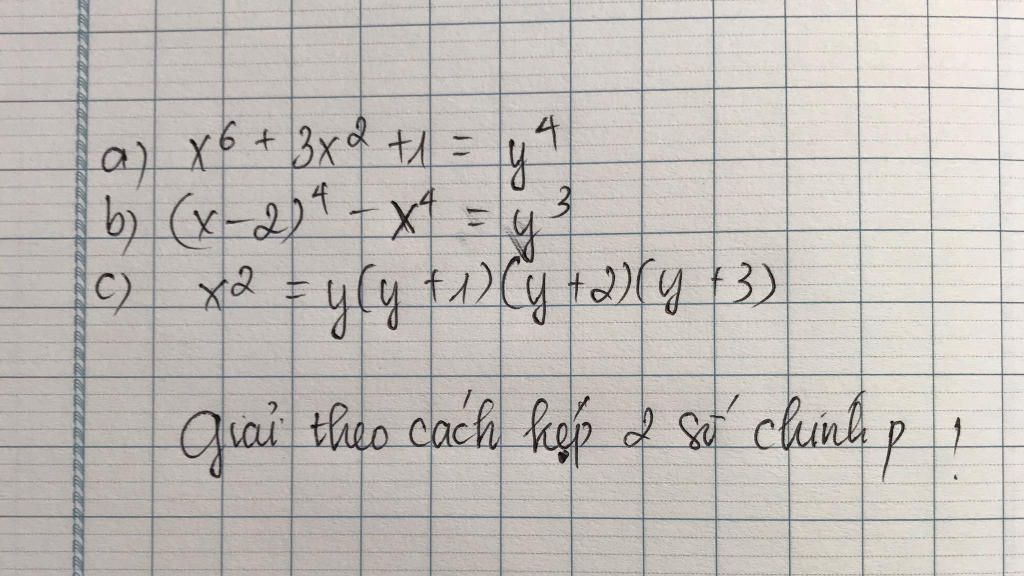 a) x⁶ + 3x² + 1 = y⁴
b) (x-2)⁴ - x⁴ = y³
c) x² = y(y+1)(y+2)(y+3)
Giải theo cách kẹp 2 số chính p !